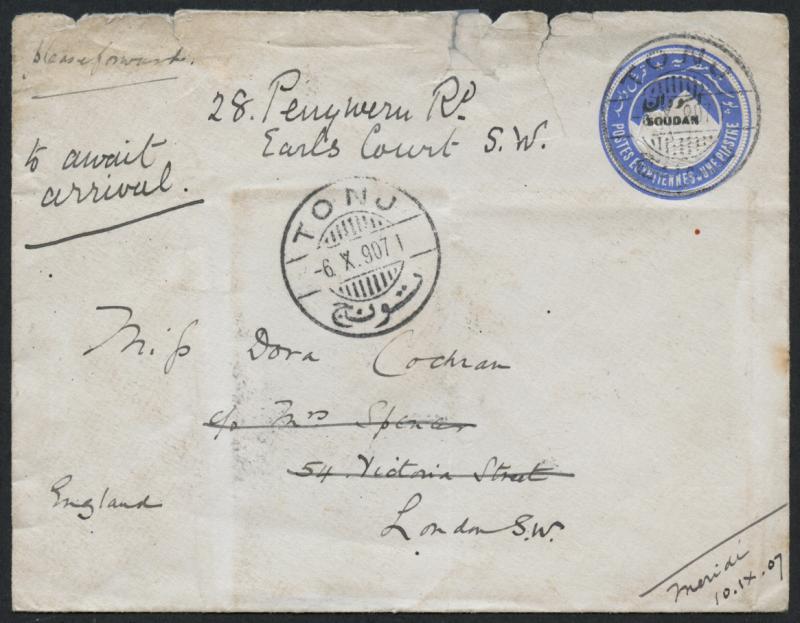 please forward.
28. Penywern Rd
Earls Court S.W.
to await
arrival.
TONJ
سودان
SOUDAN
POSTES EGYPTIENNES UNE PIASTRE
TONJ
-6. X. 907 1
تونج
Miss Dora Cochran
c/o Mrs Spencer
54 Victoria Street
London S.W.
England
Meridi
10.IX.07